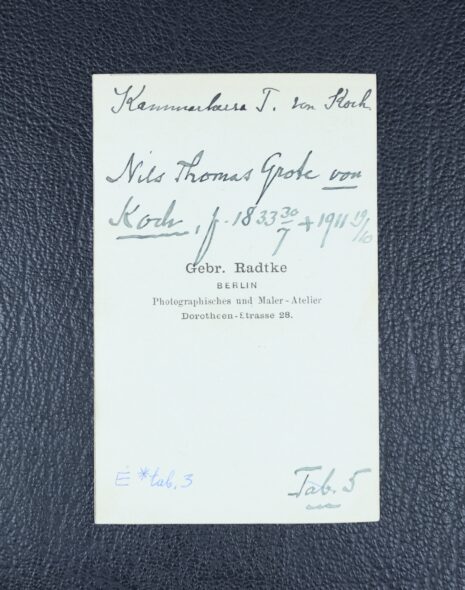 Kammarherre T. von Koch.
Nils Thomas Grote von
Koch, f. 1833 30/7 + 1911 19/10
Gebr. Radtke
BERLIN
Photographisches und Maler-Atelier
Dorotheen-Strasse 28.
E *tab. 3
Tab. 5